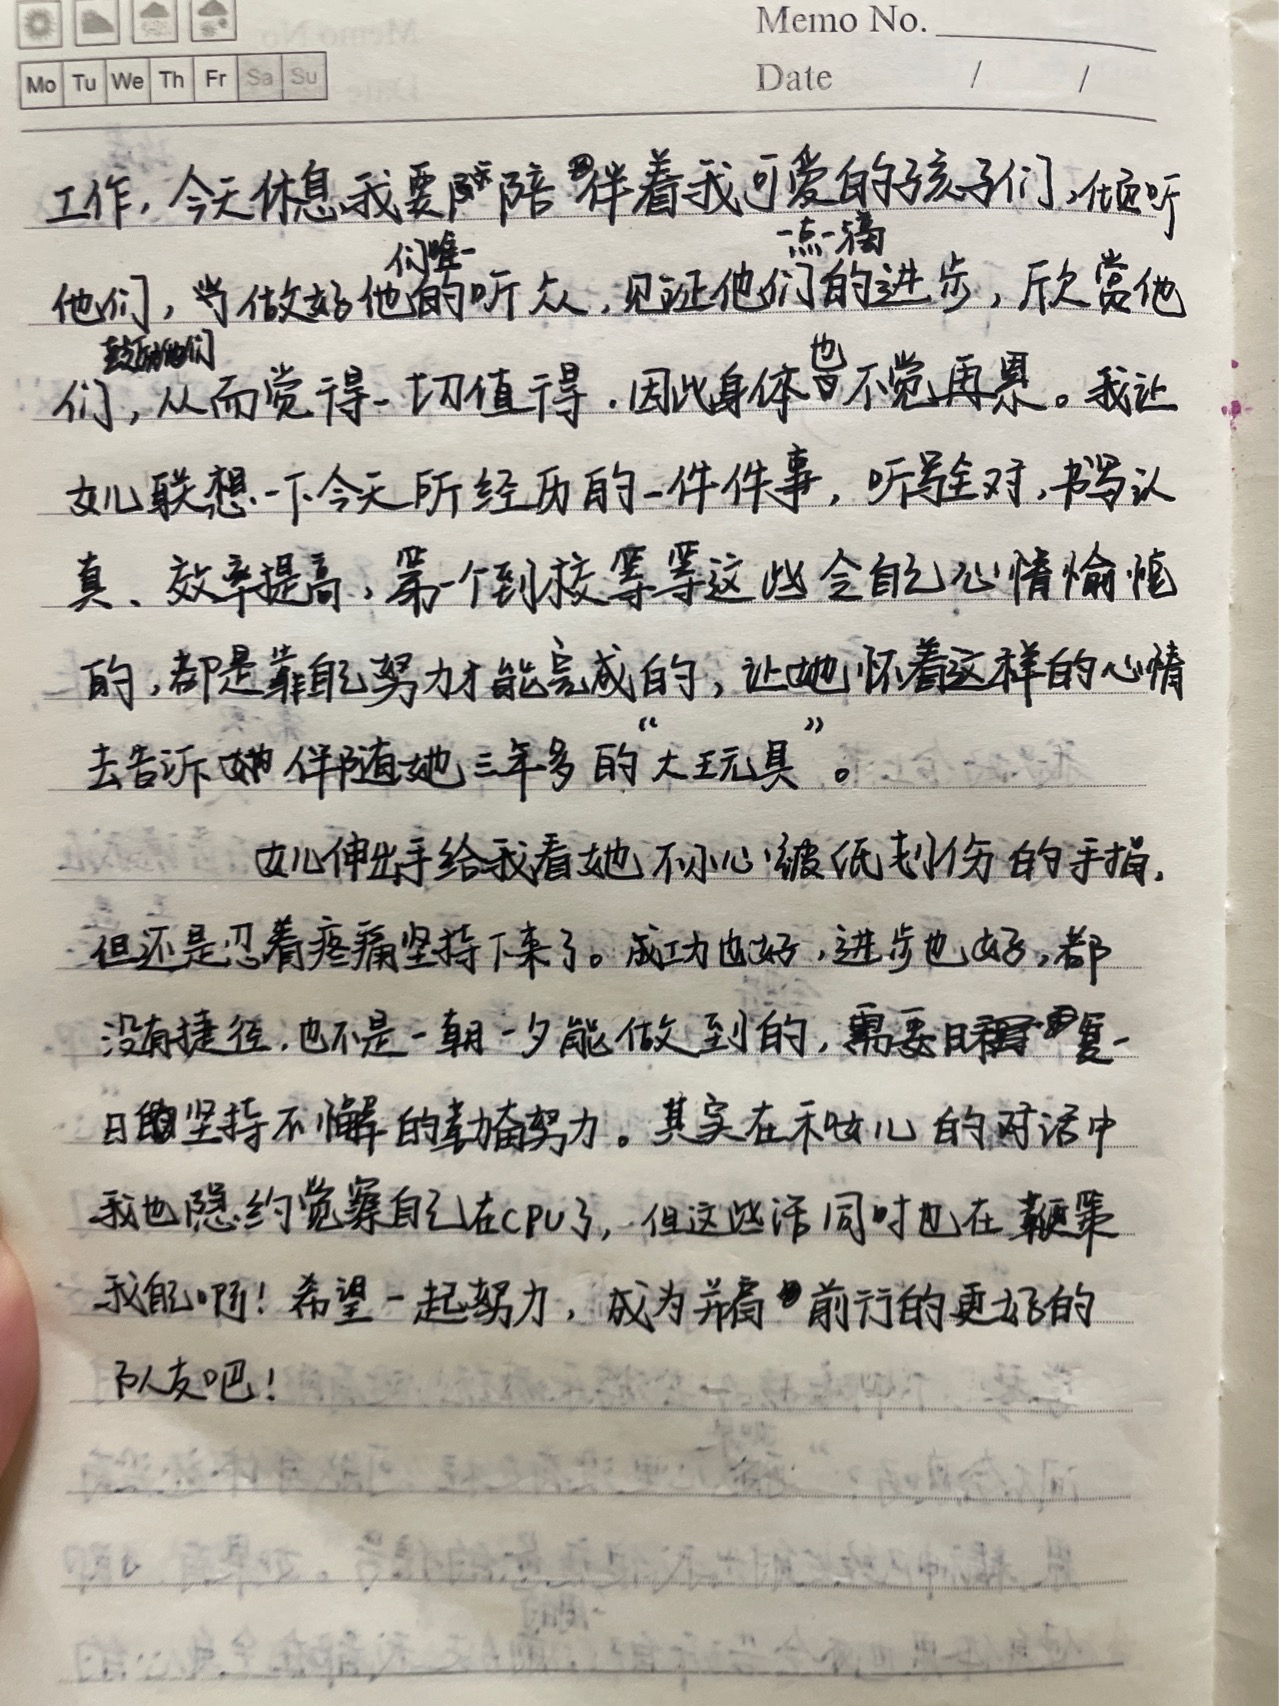 Memo No.
Mo Tu We Th Fr Sa Su
Date / /
工作，今天休息我要陪伴着我可爱的孩子们，倾听
他们，当做好他们唯一的听众，见证他们一点一滴的进步，欣赏他
们，鼓励他们，从而觉得一切值得．因此身体也不觉再累。我让
女儿联想一下今天所经历的一件件事，听写全对，书写认
真、效率提高，第一个到校等等这些令自己心情愉悦
的，都是靠自己努力才能完成的，让她怀着这样的心情
去告诉她伴随她三年多的“大玩具”。
女儿伸出手给我看她不小心被纸划伤的手指，
但还是忍着疼痛坚持下来了。成功也好，进步也好，都
没有捷径，也不是一朝一夕能做到的，需要日复一
日的坚持不懈的勤奋努力。其实在和女儿的对话中
我也隐约觉察自己在CPU了，但这些话同时也在鞭策
我自己啊！希望一起努力，成为并肩前行的更好的
队友吧！